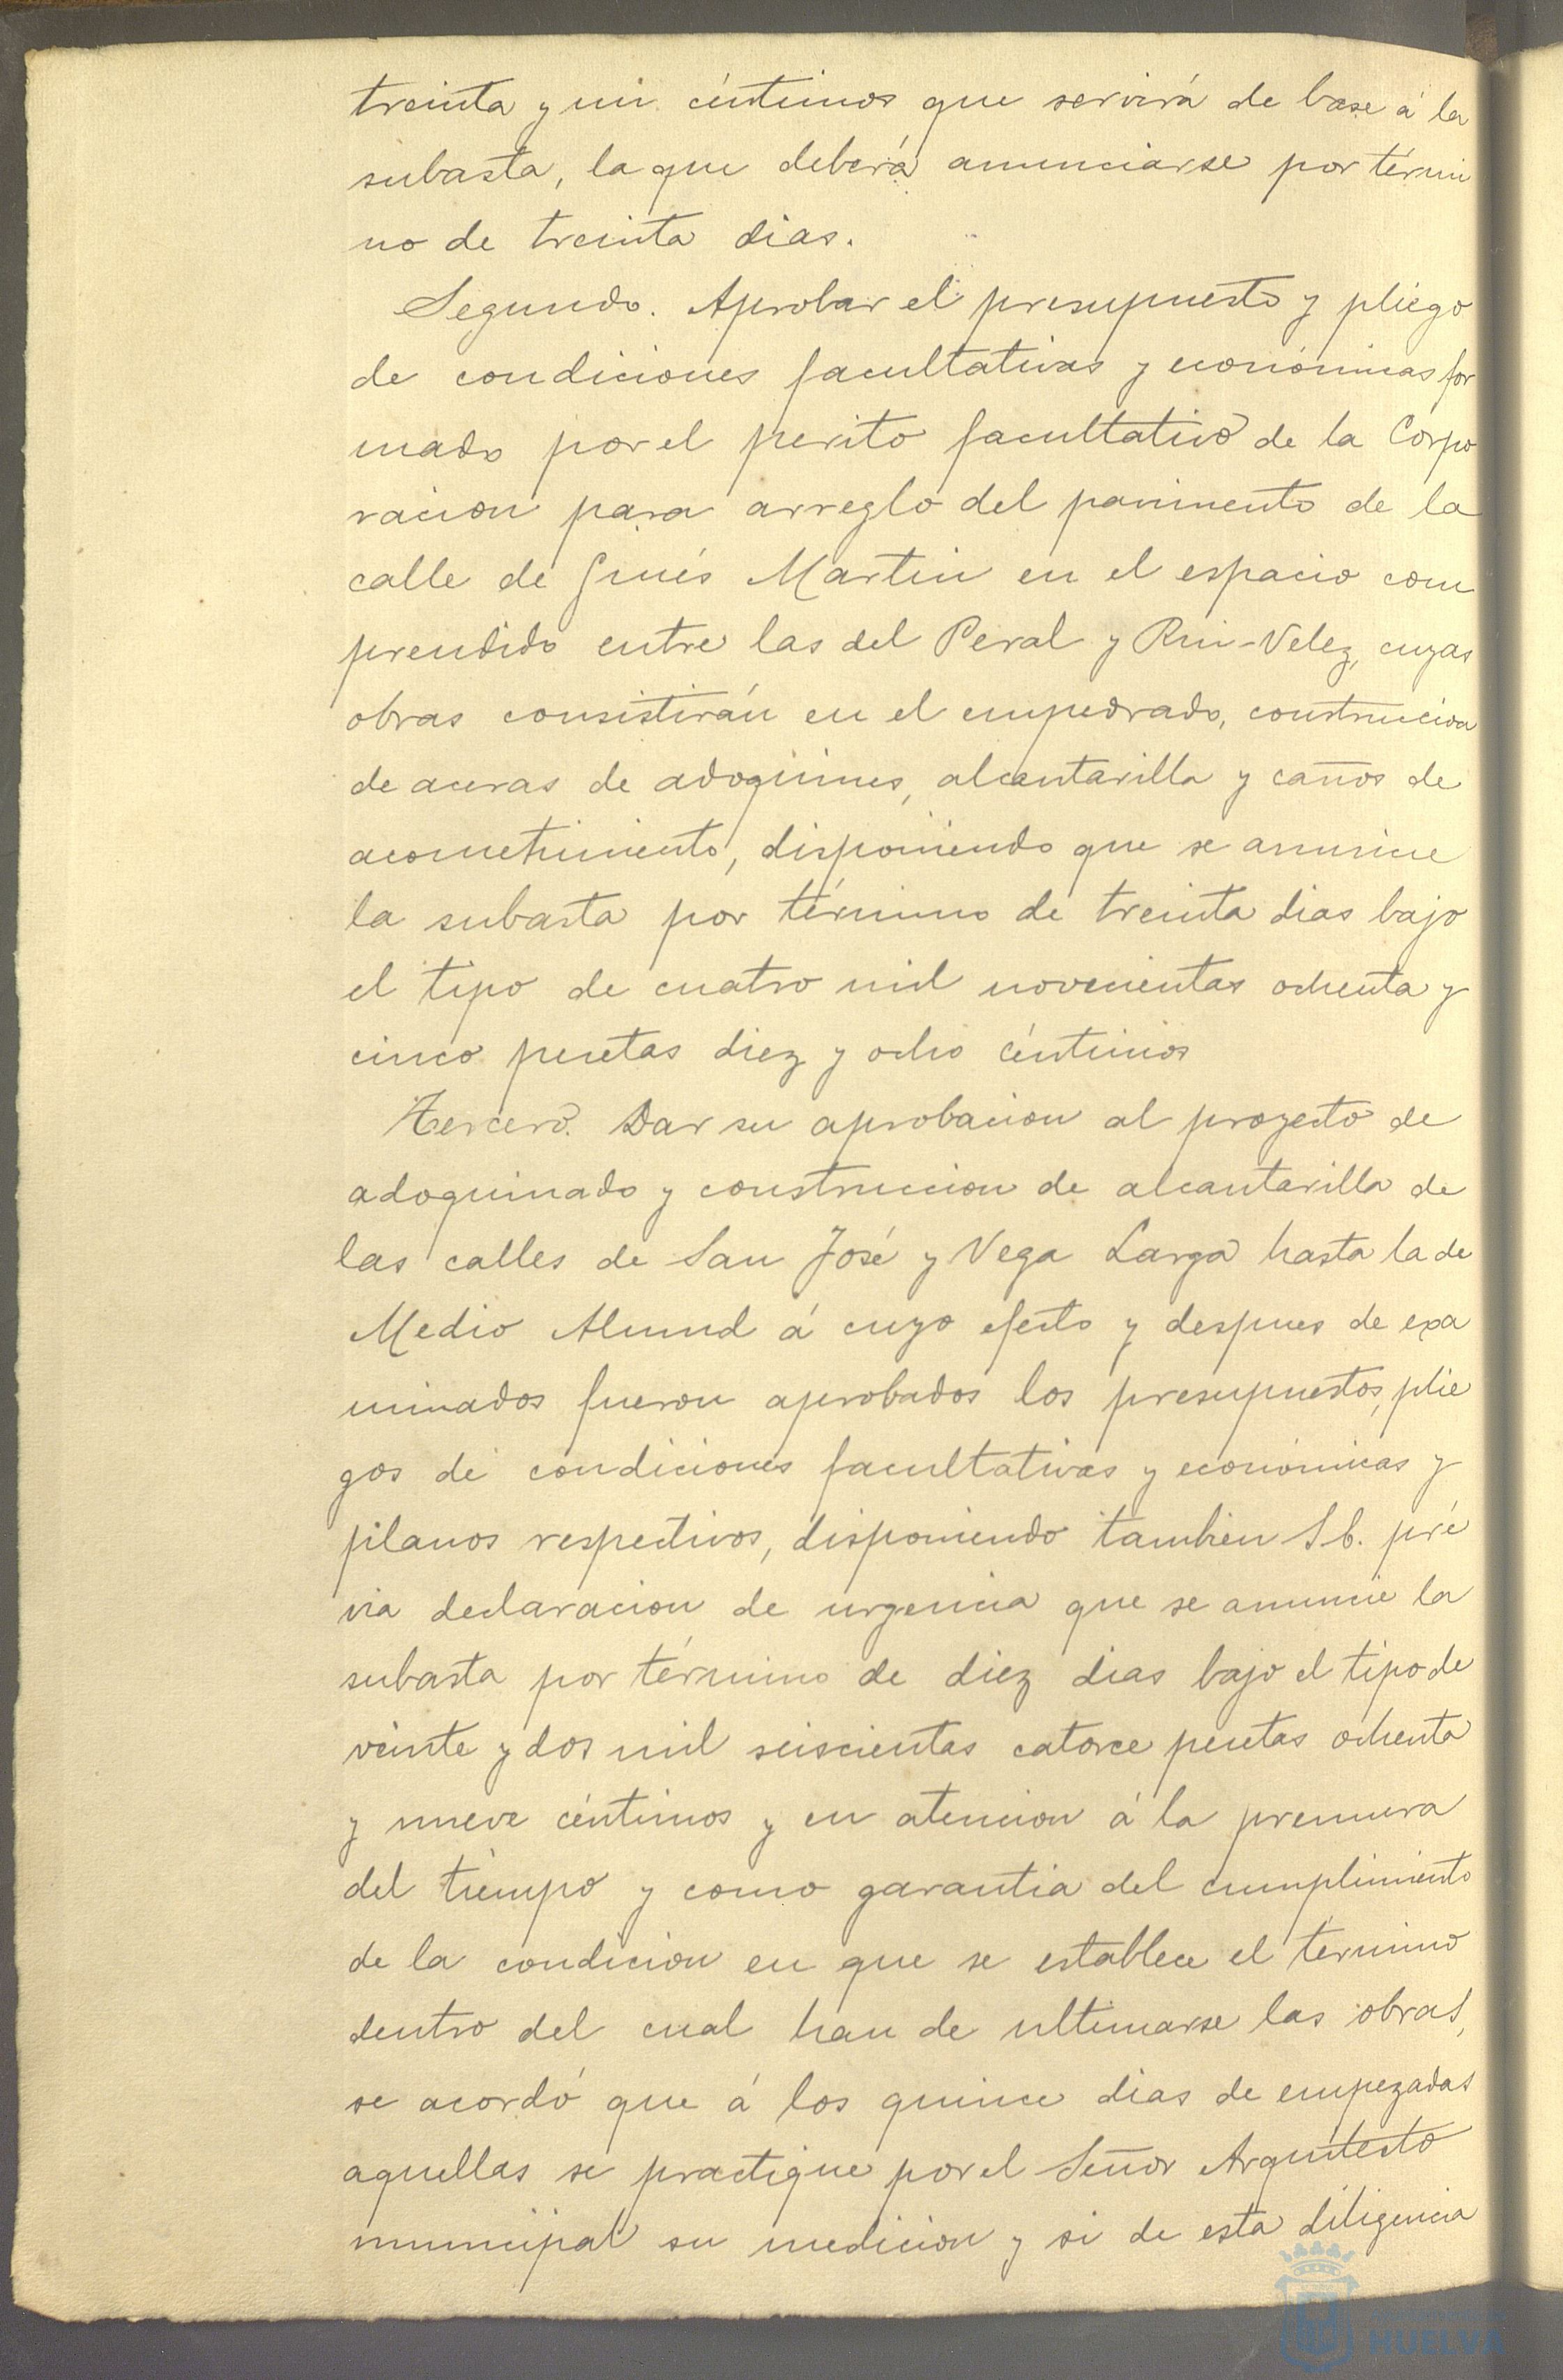 treinta y un céntimos que servirá de base á la
subasta, la que deberá anunciarse por térmi
no de treinta dias.
Segundo. Aprobar el presupuesto y pliego
de condiciones facultativas y económicas for
mado por el perito facultativo de la Corpo
racion para arreglo del pavimento de la
calle de Ginés Martin en el espacio com
prendido entre las del Peral y Rui-Velez, cuyas
obras consistirán en el empedrado, construccion
de aceras de adoquines, alcantarilla y caños de
acometimiento, disponiendo que se anuncie
la subasta por término de treinta dias bajo
el tipo de cuatro mil novecientas ochenta y
cinco pesetas diez y ocho céntimos
Tercero. Dar su aprobacion al proyecto de
adoquinado y construccion de alcantarilla de
las calles de San José y Vega Larga hasta la de
Medio Almud á cuyo efecto y despues de exa
minados fueron aprobados los presupuestos, plie
gos de condiciones facultativas y económicas y
planos respectivos, disponiendo tambien S. E. pré
via declaracion de urgencia que se anuncie la
subasta por término de diez dias bajo el tipo de
veinte y dos mil seiscientas catorce pesetas ochenta
y nueve céntimos y en atencion á la premura
del tiempo y como garantia del cumplimiento
de la condicion en que se establece el término
dentro del cual han de ultimarse las obras,
se acordó que á los quince dias de empezadas
aquellas se practique por el Señor Arquitecto
municipal su medicion y si de esta diligencia
HUELVA